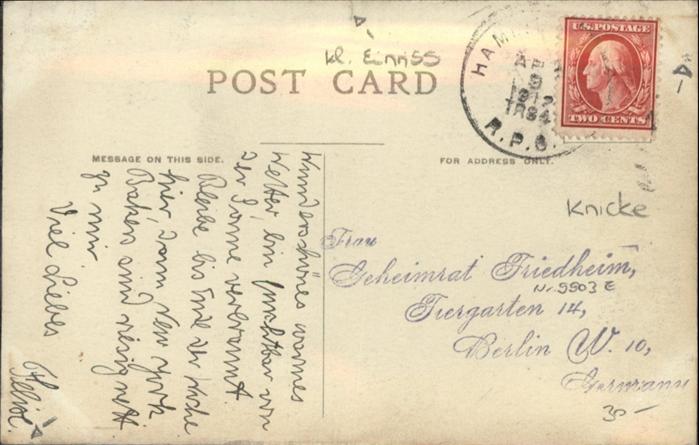 kl. Einriss
POST CARD
MESSAGE ON THIS SIDE.
FOR ADDRESS ONLY.
U.S. POSTAGE
TWO CENTS
HAM
APR
9
1912
TR 84
R.P.O.
Knicke
Wunderschönes warmes
Wetter, bin furchtbar von
der Sonne verbrannt.
Bleibe bis Ende der Woche
hier, dann New York
Bakers sind riesig nett
zu mir.
Viel Liebes
Frau
Geheimrat Friedheim,
Nr. 9903 E
Tiergarten 14,
Berlin W. 10,
Germany
30-